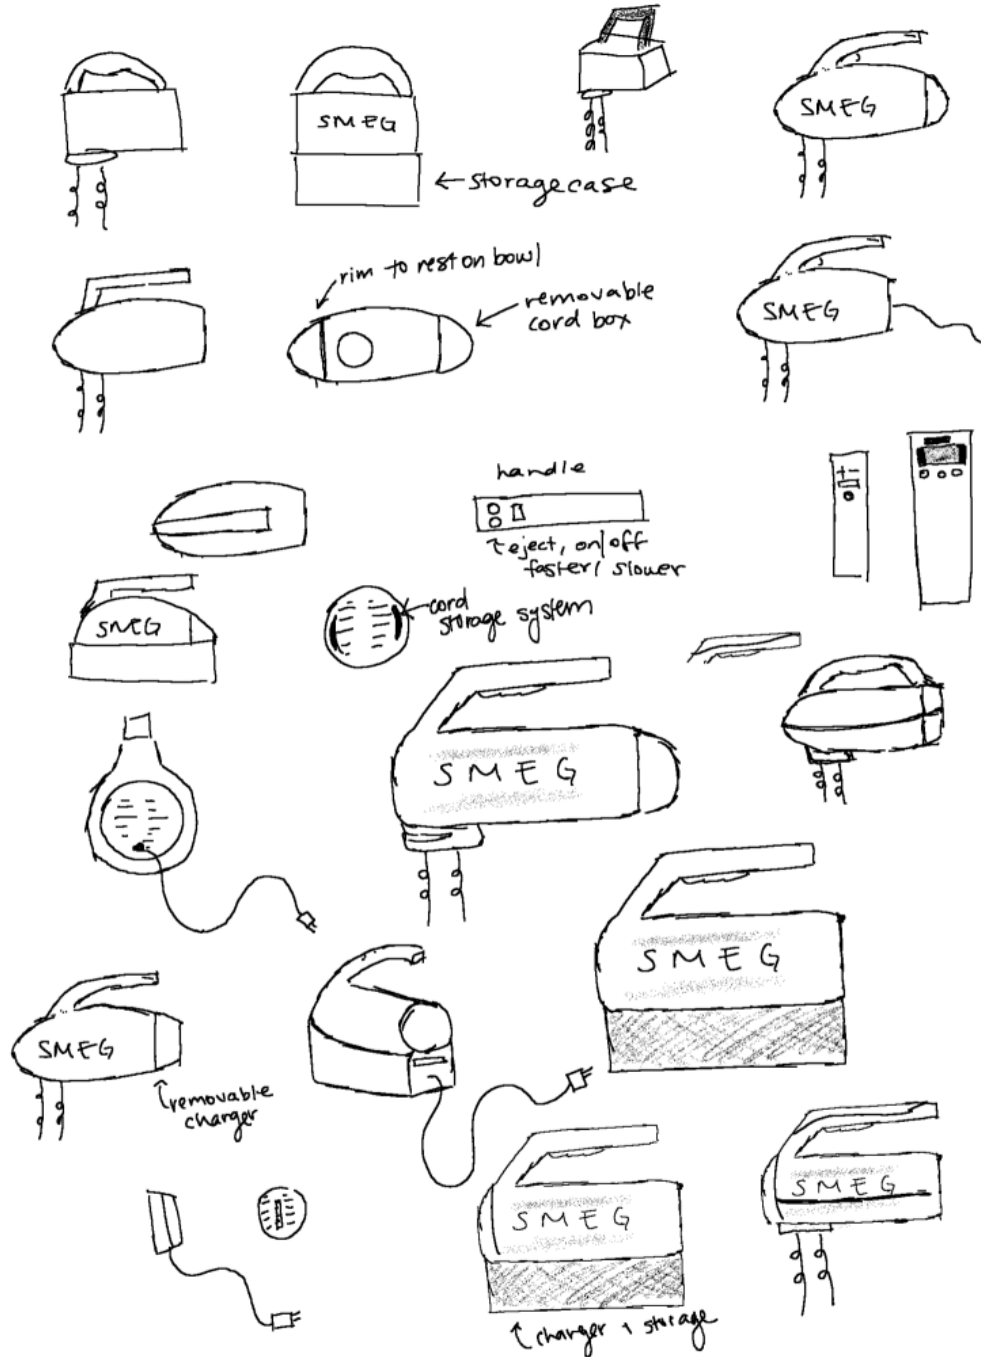 SMEG
SMEG
← storage case
rim to rest on bowl
removable
cord box
SMEG
handle
+ -
eject, on/off
faster/ slower
SMEG
cord
storage system
SMEG
SMEG
SMEG
removable
charger
SMEG
SMEG
charger + storage